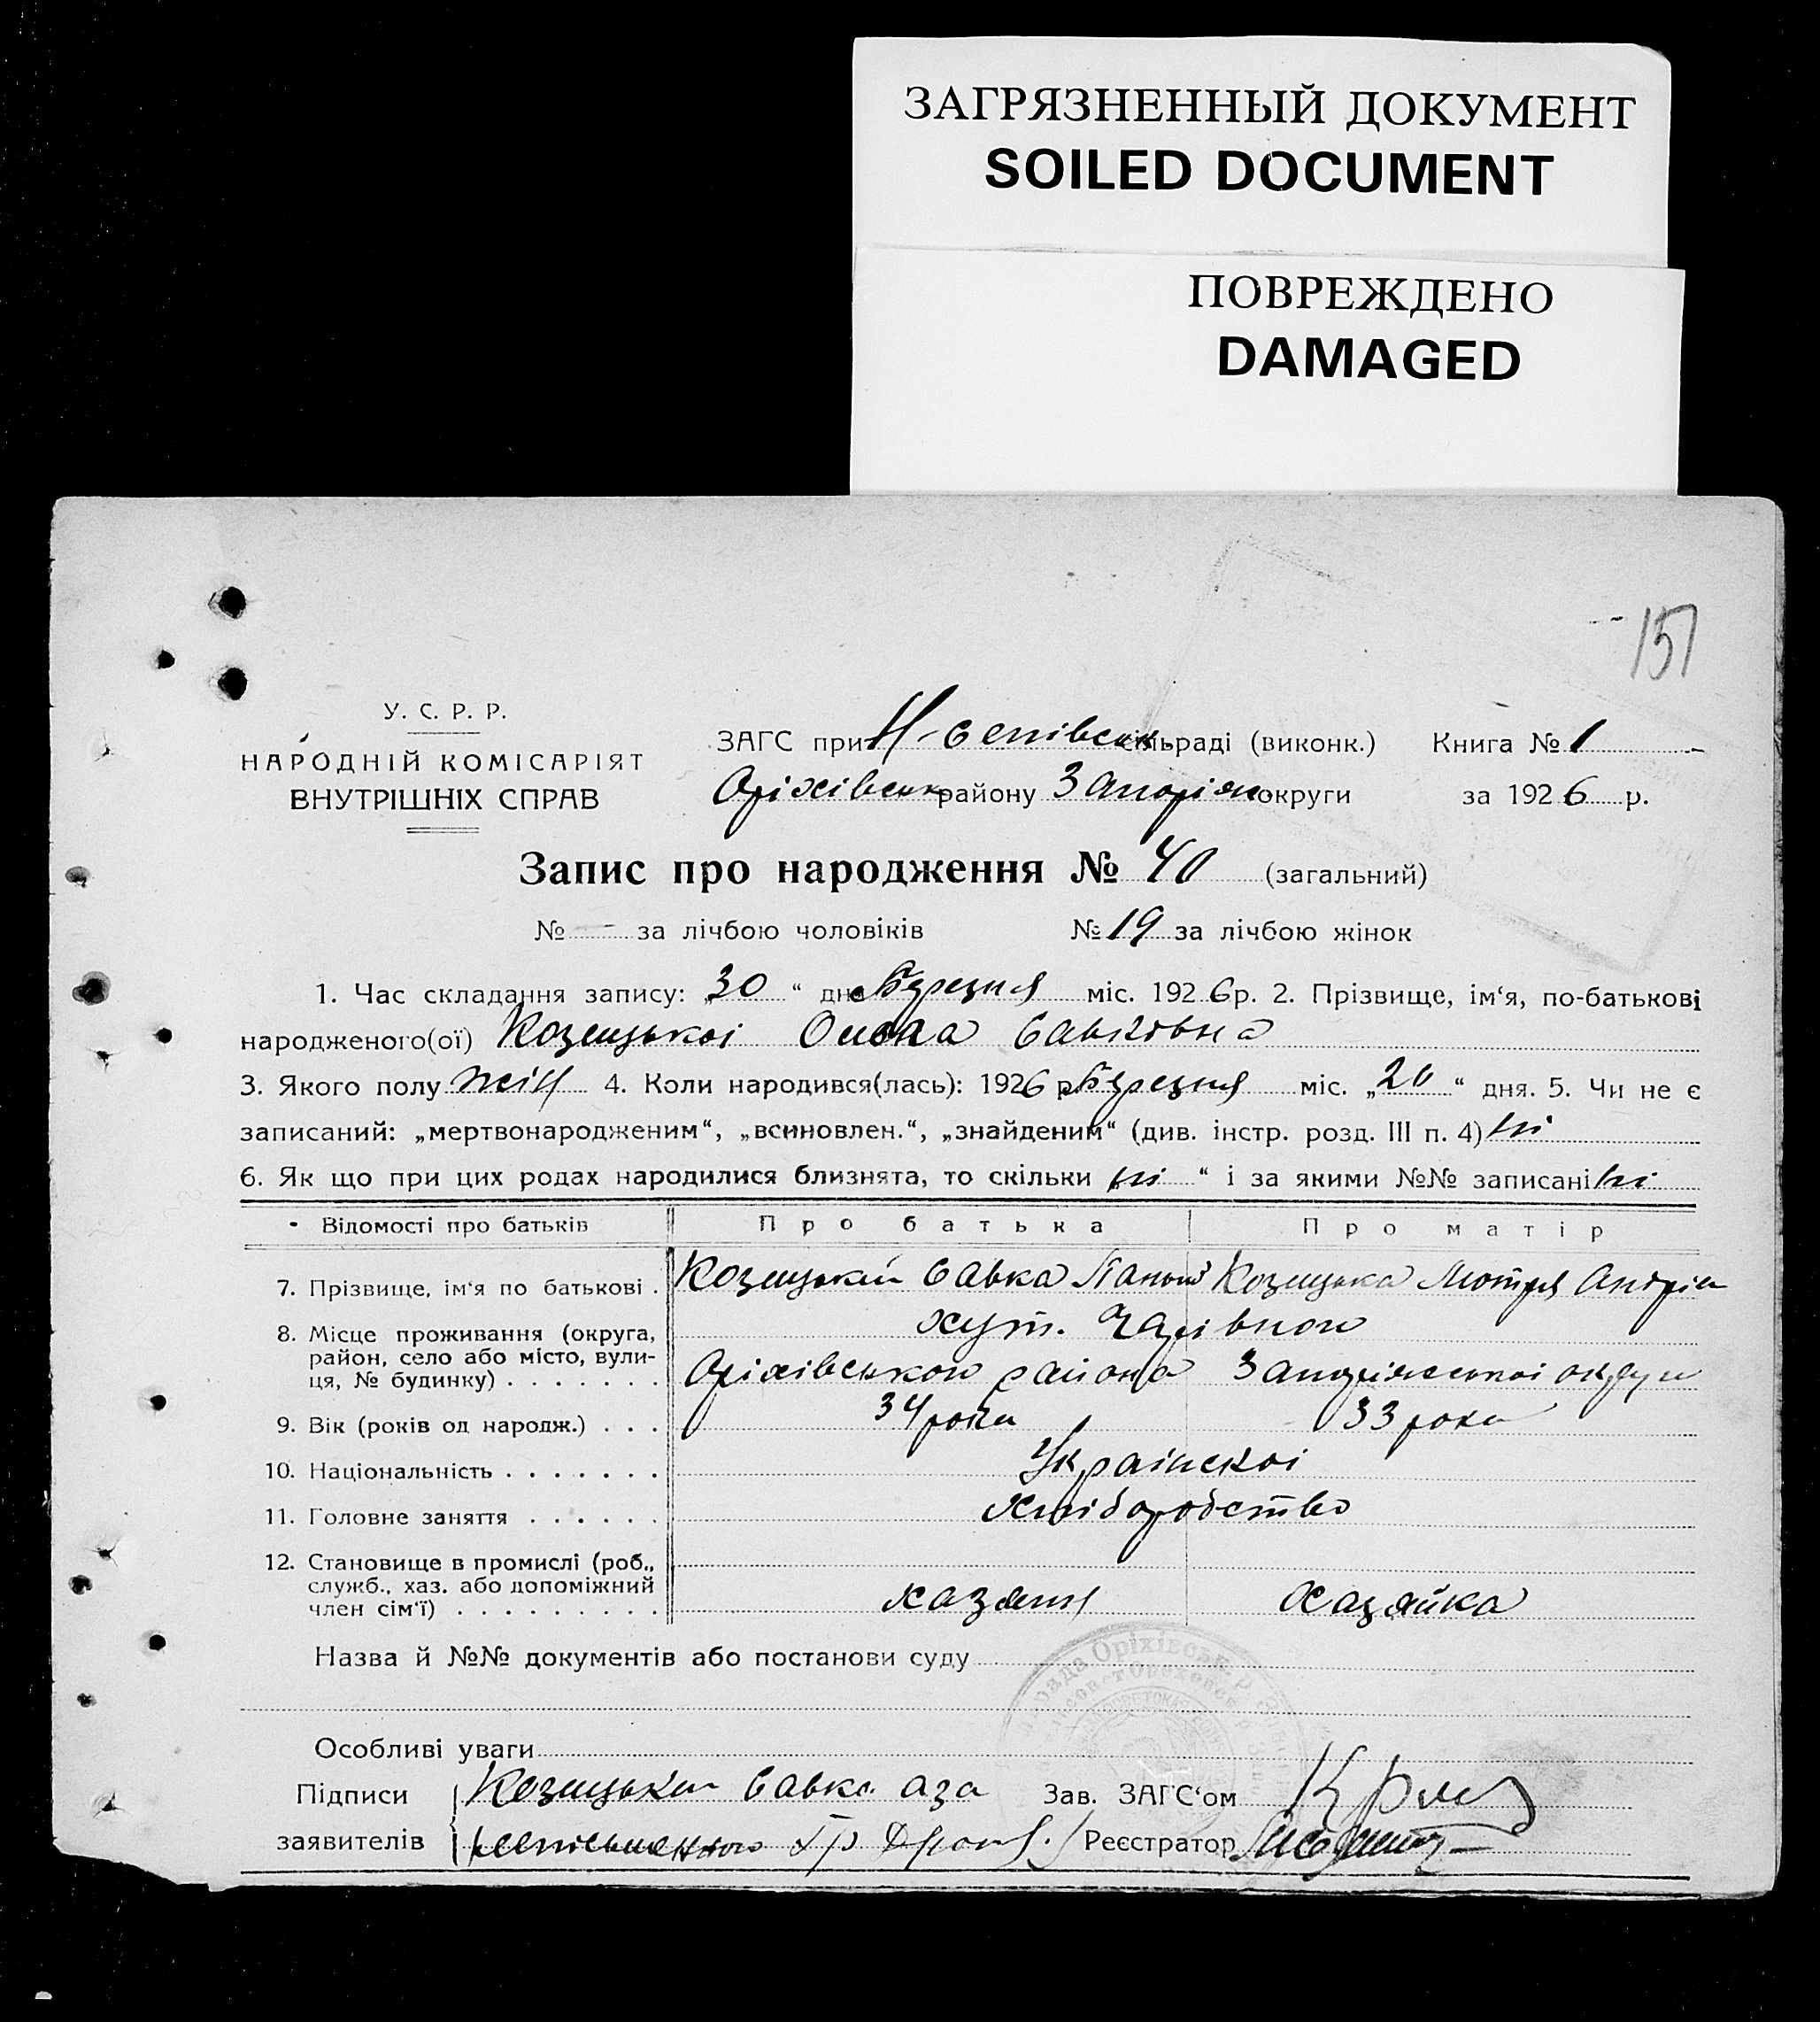 ЗАГРЯЗНЕННЫЙ ДОКУМЕНТ
SOILED DOCUMENT
ПОВРЕЖДЕНО
DAMAGED
151
У. С. Р. Р.
НАРОДНІЙ КОМІСАРІЯТ
ВНУТРІШНІХ СПРАВ
ЗАГС при сільраді (виконк.) Книга № 1
Оріхівськ району Запоріж округи за 1926 р.
Запис про народження № 40 (загальний)
№ - за лічбою чоловіків № 19 за лічбою жінок
1. Час складання запису: „30“ дня Березня міс. 1926 р. 2. Прізвище, ім‘я, по-батькові
народженого(ої) Савківна
3. Якого полу жін 4. Коли народився(лась): 1926 р. Березня міс. „20“ дня. 5. Чи не є
записаний: „мертвонародженим“, „всиновлен.“, „знайденим“ (див. інстр. розд. III п. 4) ні
6. Як що при цих родах народилися близнята, то скільки „ні“ і за якими №№ записані ні
Відомості про батьків Про батька Про матір
7. Прізвище, ім‘я по батькові . Савка Мотря Андрів
8. Місце проживання (округа, район, село або місто, вулиця, № будинку) . . . . . . . хут. Чарівного
Оріхівського района Запоріжської округи
9. Вік (років од народж.) . . . 34 роки 33 роки
10. Національність . . . . . . . Українскоі
11. Головне заняття . . . . . . Хліборобство
12. Становище в промислі (роб., служб., хаз. або допоміжний член сім‘ї) . . . . . . . . . хазяин хазяйка
Назва й №№ документів або постанови суду
Особливі уваги
Підписи Савка аза Зав. ЗАГС‘ом
заявителів Реєстратор